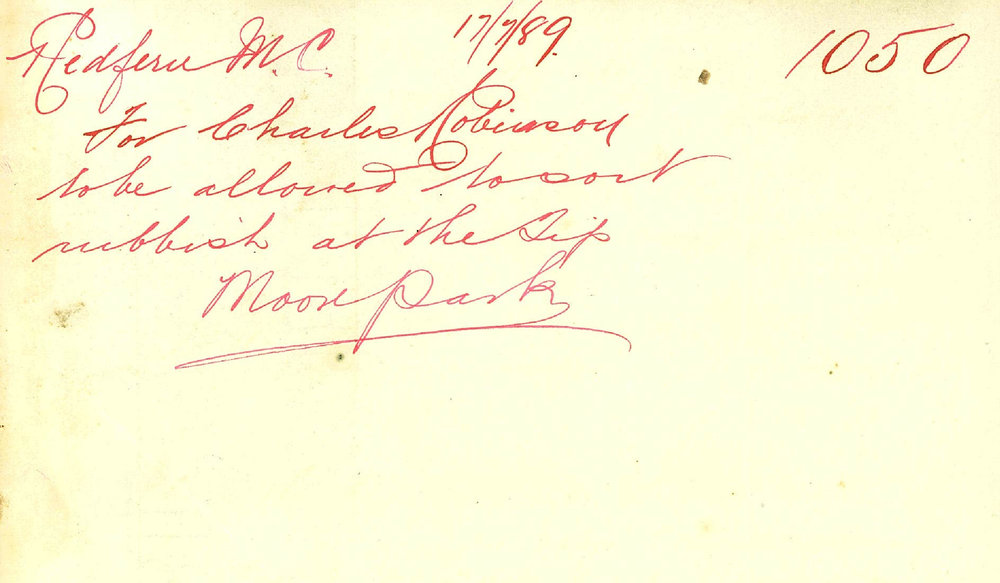 Redfern M.C. 17/7/89. 1050
For Charles Robinson
to be allowed to sort
rubbish at the Tip
Moore Park